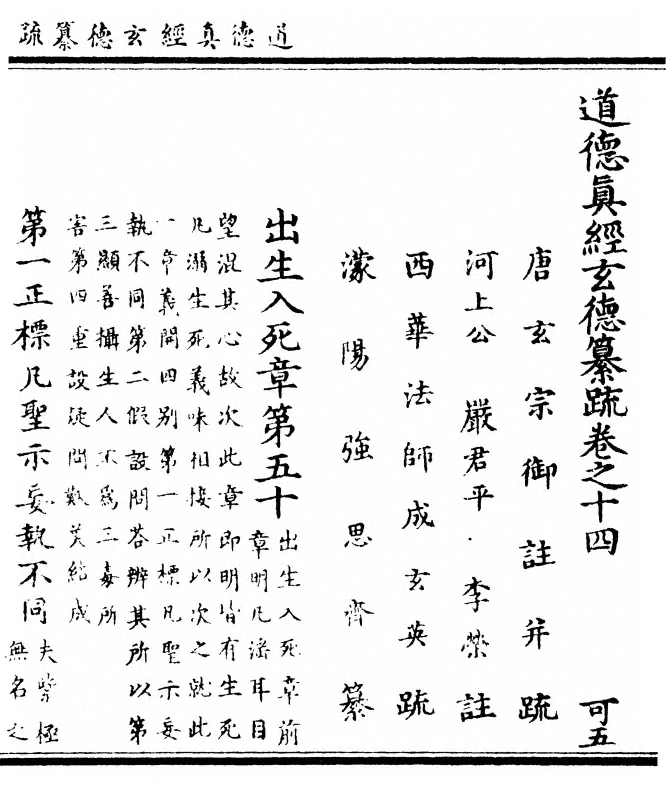 道德真經玄德纂疏
道德眞經玄德纂疏卷之十四 可五
唐玄宗御註并疏
河上公 嚴君平·李榮註
西華法師成玄英疏
濛陽強思齊纂
出生入死章第五十
出生入死章前
章明凡滛耳目
望混其心故次此章即明皆有生死
凡溺生死義味相接所以次之就此
一章義開四別第一正標凡聖示妄
執不同第二假設問荅辨其所以第
三顯善攝生人不爲三毒所
害第四重設疑問歎美結成
第一正標凡聖示妄執不同
夫極
無名之